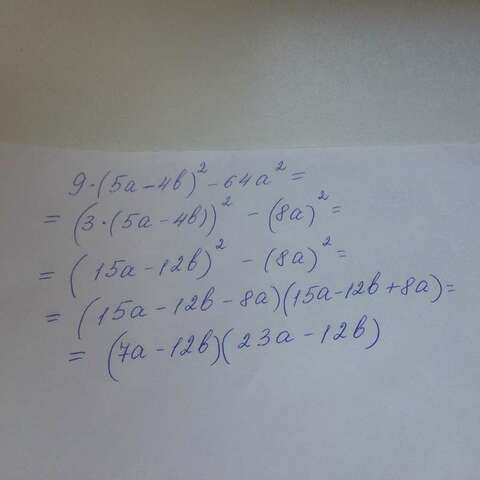 9·(5a-4b)²-64a²=
=(3·(5a-4b))²-(8a)²=
=(15a-12b)²-(8a)²=
=(15a-12b-8a)(15a-12b+8a)=
=(7a-12b)(23a-12b)